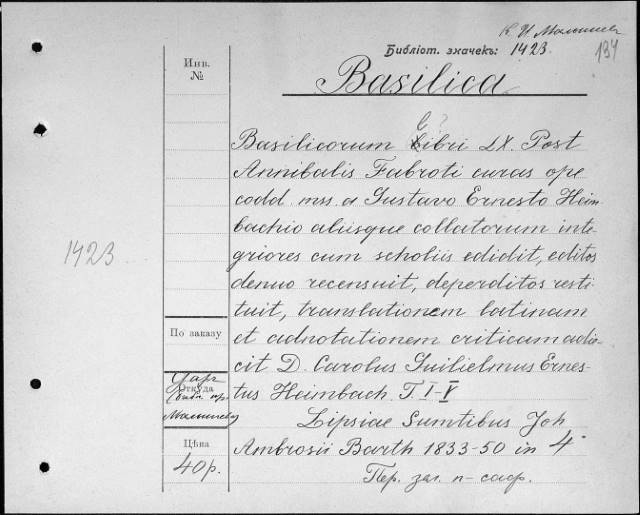 К. И. Малышев
Библіот. значекъ: 1423.
134
Инв.
№
Basilica
Basilicorum Libri LX. Post
Annibalis Fabroti curas ope
codd. mss. a Gustavo Ernesto Heim
bachio aliisque collatorum inte
griores cum scholiis edidit, editos
denuo recensuit, deperditos resti
tuit, translationem latinam
et adnotationem criticam adie
cit D. Carolus Guilielmus Ernes-
tus Heimbach. T. I-V
Lipsiae Sumtibus Joh
Ambrosii Barth 1833-50 in 4°
Пер. заг. п-саф.
1423
По заказу
Даръ
Откуда
Малышева
Цѣна
40 р.